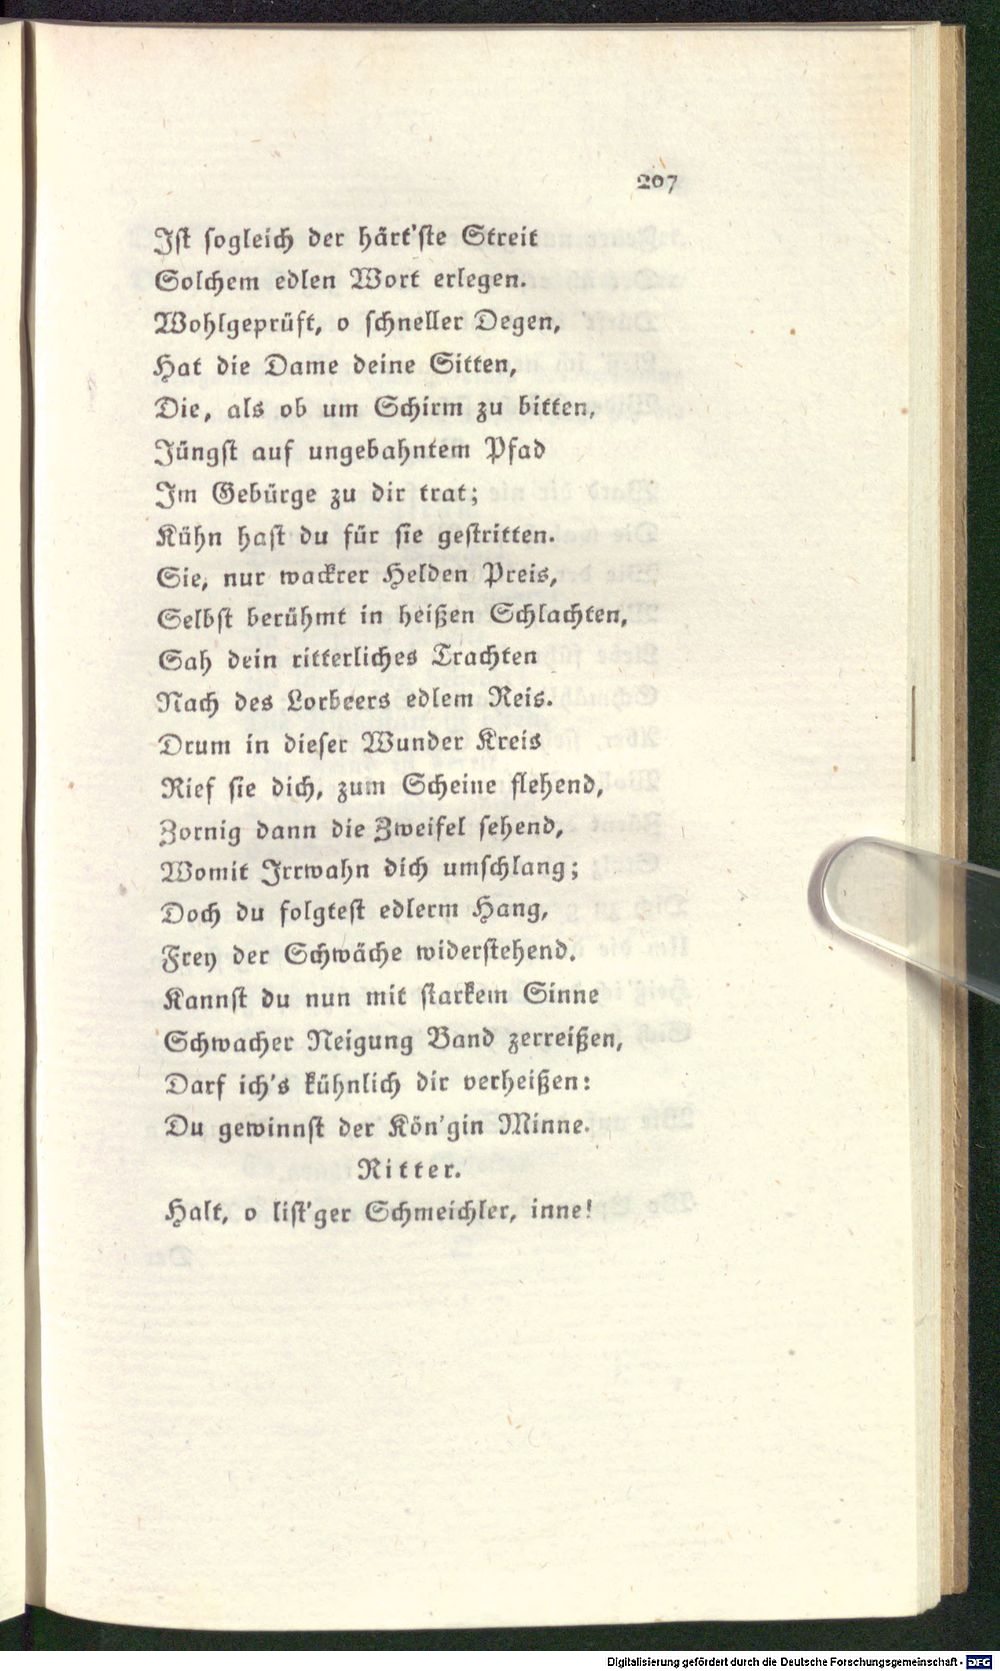 207
Ist sogleich der härt'ste Streit
Solchem edlen Wort erlegen.
Wohlgeprüft, o schneller Degen,
Hat die Dame deine Sitten,
Die, als ob um Schirm zu bitten,
Jüngst auf ungebahntem Pfad
Im Gebürge zu dir trat;
Kühn hast du für sie gestritten.
Sie, nur wackrer Helden Preis,
Selbst berühmt in heißen Schlachten,
Sah dein ritterliches Trachten
Nach des Lorbeers edlem Reis.
Drum in dieser Wunder Kreis
Rief sie dich, zum Scheine flehend,
Zornig dann die Zweifel sehend,
Womit Irrwahn dich umschlang;
Doch du folgtest edlerm Hang,
Frey der Schwäche widerstehend.
Kannst du nun mit starkem Sinne
Schwacher Neigung Band zerreißen,
Darf ich's kühnlich dir verheißen:
Du gewinnst der Kön'gin Minne.
Ritter.
Halt, o list'ger Schmeichler, inne!
Digitalisierung gefördert durch die Deutsche Forschungsgemeinschaft - DFG